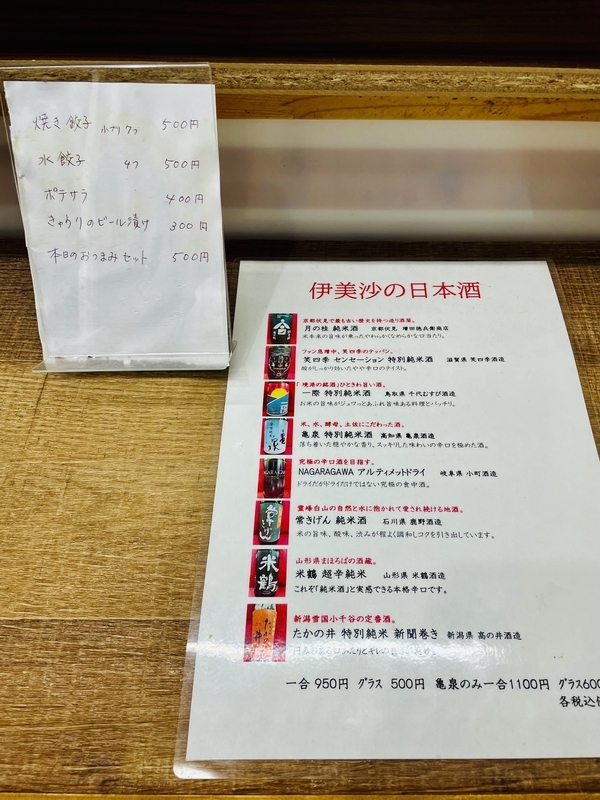 焼き餃子 小ぶり7つ 500円
水餃子 4つ 500円
ポテサラ 400円
きゅうりのビール漬け 300円
本日のおつまみセット 500円
伊美沙の日本酒
京都伏見で最も古い歴史を持つ造り酒屋。
月の桂 純米酒 京都伏見 増田徳兵衛商店
米本来の旨味が乗ったやわらかくなめらかな口当たり。
ファン急増中、笑四季のテッパン。
笑四季 センセーション 特別純米酒 滋賀県 笑四季酒造
酸がしっかり効いたやや辛口のテイスト。
境港の銘酒」ひときわ旨い酒。
一際 特別純米酒 鳥取県 千代むすび酒造
お米の旨味がジュワっとあふれ旨味ある料理とバッチリ。
米、水、酵母、土佐にこだわった酒。
亀泉 特別純米酒 高知県 亀泉酒造
落ち着いた穏やかな香り、スッキリした味わいの辛口を極めた酒。
究極の辛口酒を目指す。
NAGARAGAWA アルティメットドライ 岐阜県 小町酒造
ドライだがドライだけではない究極の食中酒。
霊峰白山の自然と水に抱かれて愛され続ける地酒。
常きげん 純米酒 石川県 鹿野酒造
米の旨味、酸味、渋みが程よく調和しコクを引き出しています。
山形県まほろばの酒蔵。
米鶴 超辛純米 山形県 米鶴酒造
これぞ「純米酒」と実感できる本格辛口です。
新潟雪国小千谷の定番酒。
たかの井 特別純米 新聞巻き 新潟県 高の井酒造
一合 950円 グラス 500円 亀泉のみ一合1100円 グラス600
各税込